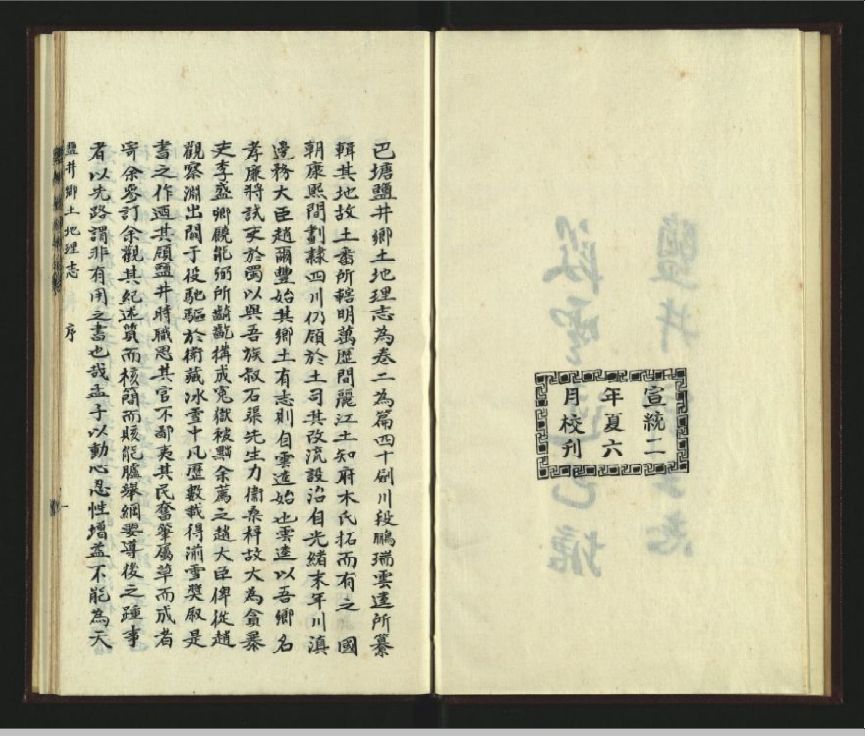 宣統二
年夏六
月校刊
巴塘鹽井鄉土地理志為卷二為篇四十劍川段鵬瑞雲逵所纂
輯其地故土番所轄明萬歷間麗江土知府木氏拓而有之 國
朝康熙間劃隸四川仍領於土司其改流設治自光緒末年川滇
邊務大臣趙爾豐始其鄉土有志則自雲逵始也雲逵以吾鄉名
孝廉將試吏於蜀以與吾族叔石渠先生力衞桑梓故大為貪暴
吏李盛卿饒能弼所齮齕構成冤獄被黜余薦之趙大臣俾從趙
觀察淵出關于役馳驅於衞藏冰雪中凡歷數載得湔雪獎敘是
書之作迺其領鹽井時職思其官不鄙夷其民奮筆屬草而成者
寄余參訂余觀其紀述質而核簡而賅能臚舉綱要導後之踵事
者以先路謂非有用之書也哉孟子以動心忍性增益不能為天
鹽井鄉土地理志 序 一